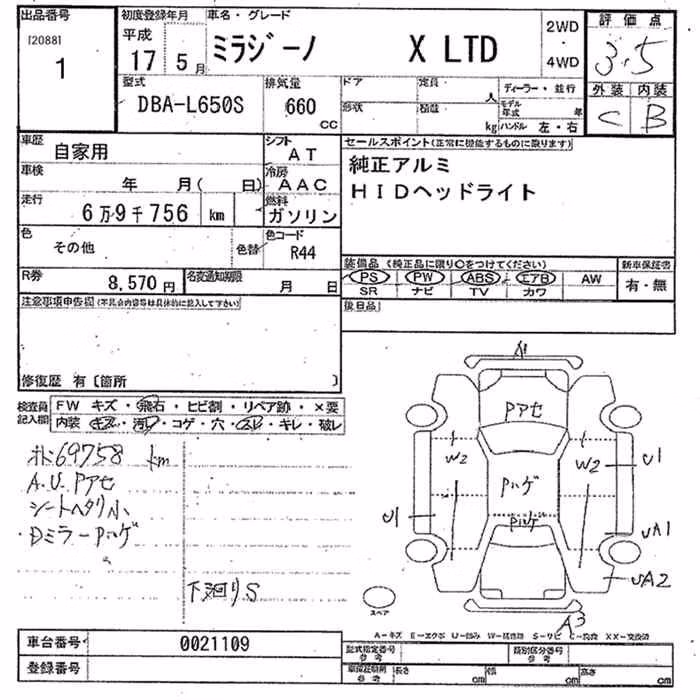 出品番号 初度登録年月 車名・グレード 2WD 評価点
[2088] 平成 ミラジーノ X LTD ・ 3.5
1 17年 5月 4WD
型式 排気量 ドア 定員 ディーラー・並行 外装 内装
DBA-L650S 660 CC 形状 積載 人 モデル年式 年 C B
kg ハンドル 左・右
車歴 自家用 シフト AT セールスポイント(正常に機能するものに限ります)
車検 年 月( 日) 冷房 AAC 純正アルミ
走行 6万9千756 km 燃料 ガソリン HIDヘッドライト
色 その他 色替 色コード R44
装備品(純正品に限り○をつけてください) 新車保証書
R券 8,570円 名変通知期限 月 日 PS PW ABS エアB AW 有・無
SR ナビ TV カワ
注意事項申告欄(不具合内容等は具体的に記入して下さい) 後日品
修復歴 有〔箇所 〕
検査員 FW キズ・飛石・ヒビ割・リペア跡・×要
記入欄 内装 キズ・汚レ・コゲ・穴・スレ・キレ・破レ
69758 km
A.U. Pアセ
シートヘタリ小
・Dミラー Pハゲ
下廻りS
A1
Pアセ
W2 W2 U1
Pハゲ
U1 Pハゲ UA1
UA2
スペア
A3
A−キズ E−エクボ U−凹み W−補修跡 S−サビ C−腐食 XX−交換済
車台番号 0021109 型式指定番号 参考 類別区分番号 参考
登録番号 車検証明細 参考 長さ cm 幅 cm 高さ cm